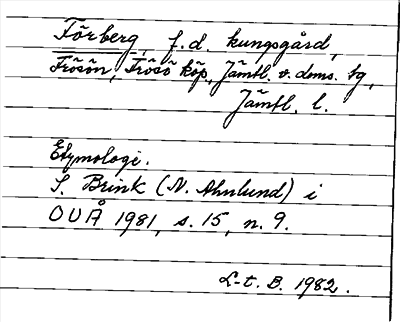 Förberg, f.d. kungsgård,
Frösön, Frösö köp, Jämtl. v. doms. tg,
Jämtl. l.
Etymologi.
S. Brink (N. Ahnlund) i
OUÅ 1981, s. 15, n. 9.
L-t. B. 1982.